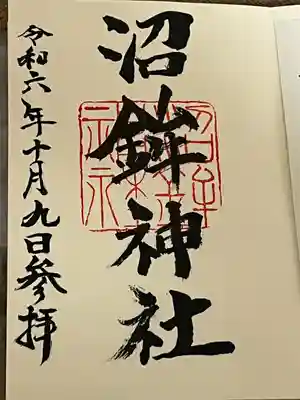 沼鉾神社
令和六年十月九日参拝